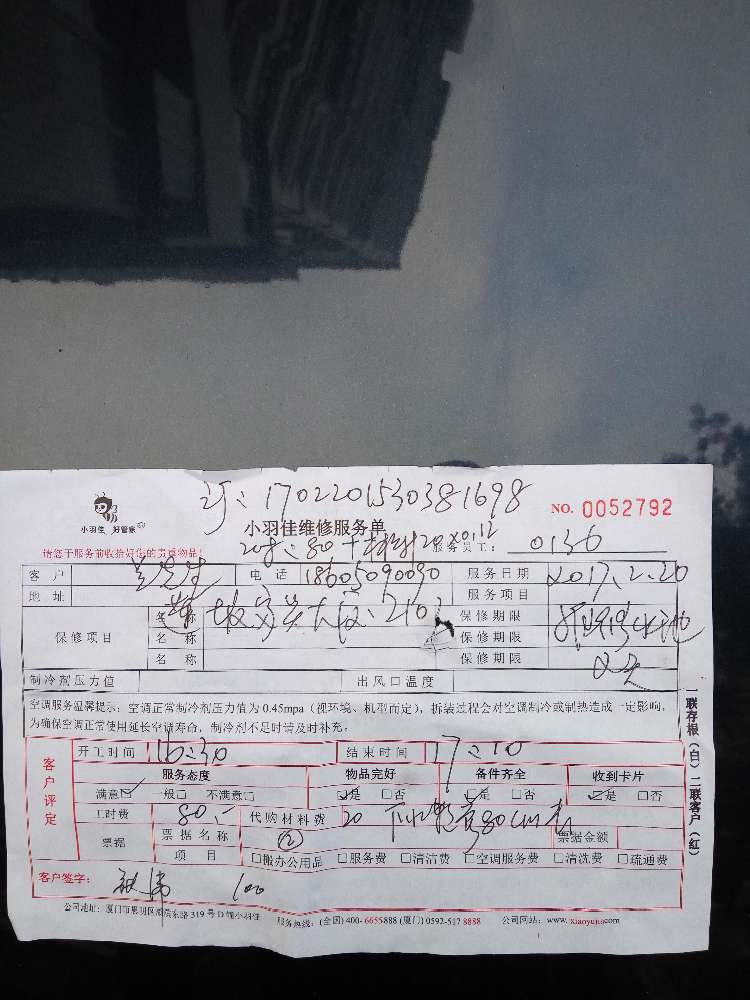 170220153038​1698
小羽佳 好管家
小羽佳维修服务单
NO. 0052792
请您于服务前收拾好您的贵重物品！
服务员工： 0136
客 户 电 话 18605090090 服务日期 2017.2.20
地 址 服务项目
保修项目 名 称 保修期限
名 称 保修期限
名 称 保修期限
制冷剂压力值 出风口温度
空调服务温馨提示：空调正常制冷剂压力值为 0.45mpa（视环境、机型而定），拆装过程会对空调制冷或制热造成一定影响，
为确保空调正常使用延长空调寿命，制冷剂不足时请及时补充。
一联存根（白）二联客户（红）
客户评定
开工时间 16:30 结束时间 17:10
服务态度 物品完好 备件齐全 收到卡片
满意☑ 一般□ 不满意□ ☑是 □否 ☑是 □否 ☑是 □否
工时费 80 代购材料费 20
票据 票据名称 ② 票据金额
项 目 □搬办公用品 □服务费 □清洁费 □空调服务费 □清洗费 □疏通费
客户签字： 100
公司地址：厦门市思明区湖滨东路 319 号 D 幢小羽佳 服务热线：(全国) 400-6655888 (厦门) 0592-517 8888 公司网站：www.xiaoyujia.com